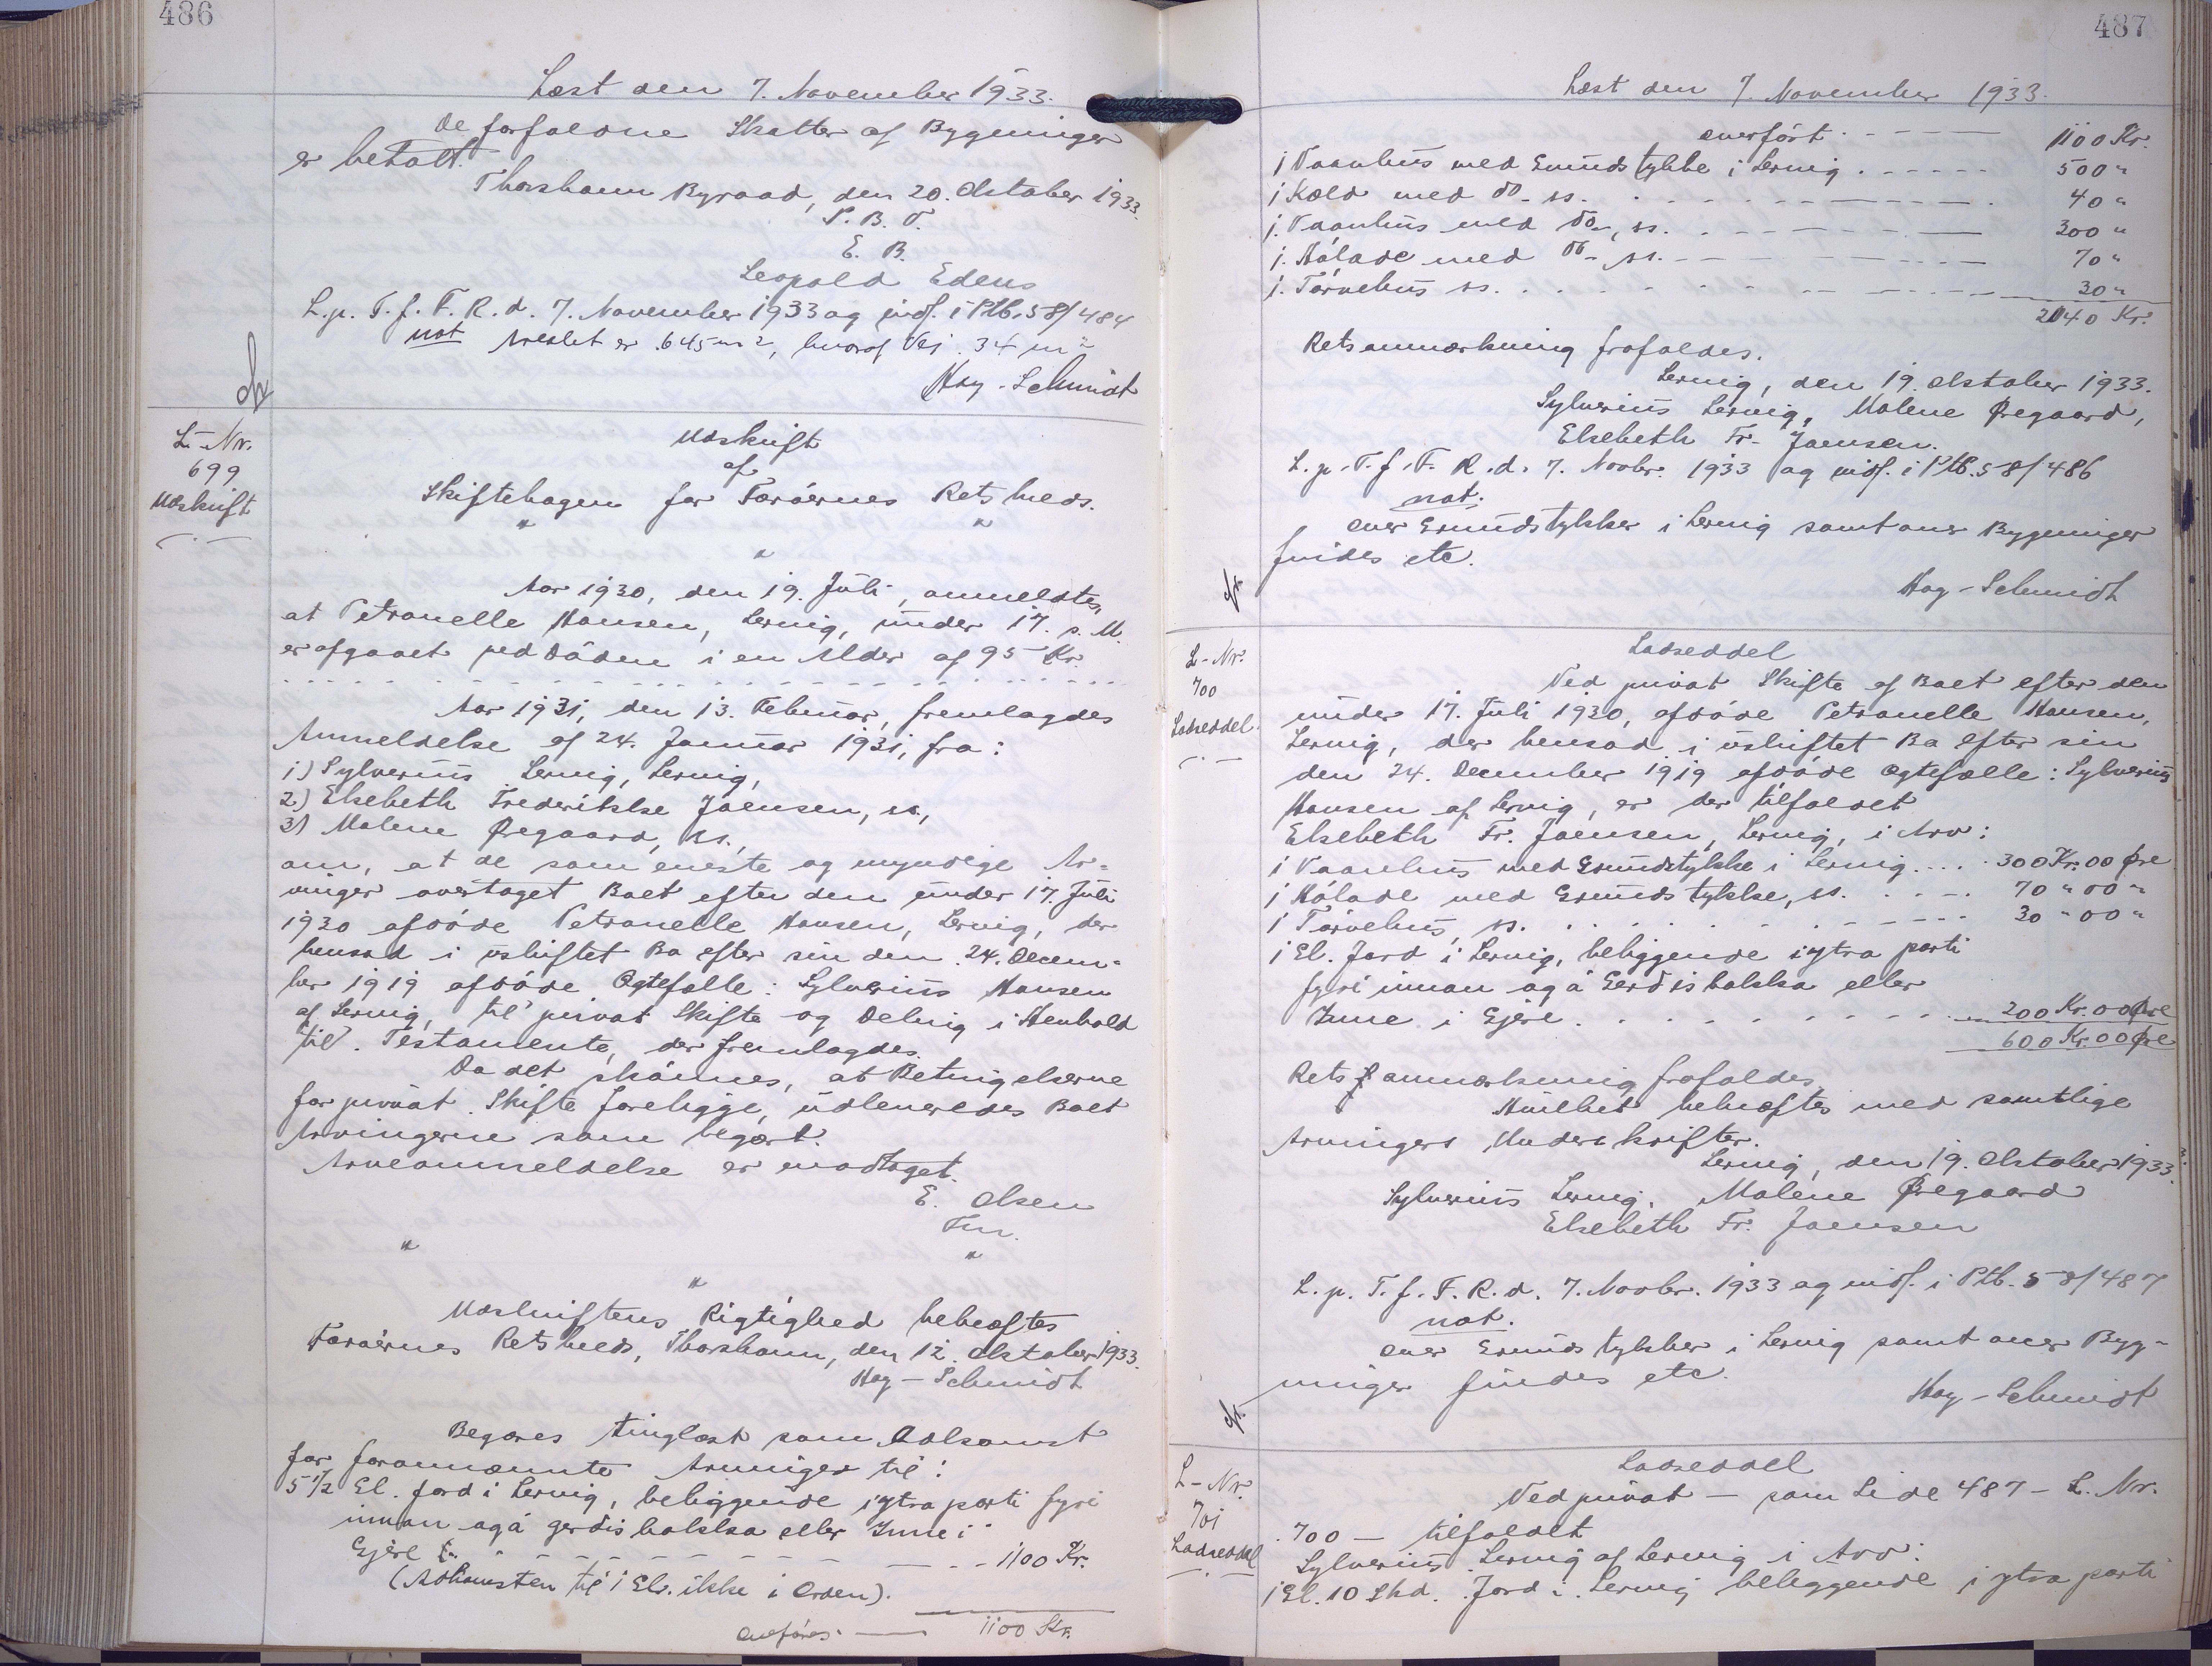 486
Læst den 7. November 1933.
De forfaldne Skatter af Bygninger
er betalt.
Thorshavn Byraad, den 20. Oktober 1933.
P. B. V.
E. B.
Leopold Edens
L. p. T. f. F. R. d. 7. November 1933 og indf. i Ptb. 58/484
not Arealet er 645 m2, hvoraf Vej 34 m2
Høy-Schmidt
L-Nr.
699
Udskrift
Udskrift
af
Skiftebogen for Færøernes Retskreds.
" "
"
Aar 1930, den 19. Juli, anmeldtes,
at Petranelle Hansen, Lervig, under 17. s. M.
er afgaaet ved Døden i en Alder af 95 Kr.
Aar 1931, den 13. Februar, fremlagdes
Anmeldelse af 24. Januar 1931, fra:
1) Sylverius Lervig, Lervig,
2.) Elsebeth Frederikke Joensen, ss.,
3) Malene Øregaard, ss.,
om, at de som eneste og myndige Ar-
vinger overtaget Boet efter den under 17. Juli
1930 afdøde Petranelle Hansen, Lervig, der
hensad i uskiftet Bo efter sin den 24. Decem-
ber 1919 afdøde Ægtefælle: Sylverius Hansen
af Lervig, til privat Skifte og Deling i Henhold
til Testamente, der fremlagdes.
Da det skønnes, at Betingelserne
for privat Skifte foreligge, udleveredes Boet
Arvingerne som begært.
Arveanmeldelse er modtaget.
E. Olsen
Fm.
" "
"
Udskriftens Rigtighed bekræftes
Færøernes Retskreds, Thorshavn, den 12. Oktober 1933.
Høy-Schmidt
Begæres tinglæst som Adkomst
for forannævnte Arvinger til:
5 1/2 El. Jord i Lervig, beliggende i ytra parti fyri
innan og á gerdisbakka eller Inne i
Gjère - - - 1100 Kr.
(Adkomsten til 1 El. ikke i Orden).
overføres. — 1100 Kr.
487
Læst den 7. November 1933.
overført - - - 1100 Kr.
1 Vaanhus med Grundstykke i Lervig . . . 500 "
1 Kæld med do. ss. . . . 40 "
1. Vaanhus med do., ss. . . . 300 "
1. Hólade med do. ss. . . . 70 "
1. Tørvehus ss. . . . 30 "
2040 Kr.
Retsanmærkning frafaldes.
Lervig, den 19. Oktober 1933.
Sylverius Lervig, Malene Øregaard,
Elsebeth Fr. Joensen.
L. p. T. f. F. R. d. 7. Novbr. 1933 og indf. i Ptb. 58/486
not.
over Grundstykker i Lervig samt over Bygninger
findes etc.
Høy-Schmidt
L-Nr.
700
Lodseddel.
Lodseddel
Ved privat Skifte af Boet efter den
under 17. Juli 1930, afdøde Petranelle Hansen,
Lervig, der hensad i uskiftet Bo efter sin
den 24. December 1919 afdøde Ægtefælle: Sylverius
Hansen af Lervig, er der tilfaldet
Elsebeth Fr. Joensen, Lervig, i Arv:
1 Vaanhus med Grundstykke i Lervig . . . 300 Kr. 00 Øre
1 Hólade med Grundstykke, ss. . . . 70 " 00 "
1 Tørvehus, ss. . . . 30 " 00 "
1 El. Jord i Lervig, beliggende i ytra parti
fyri innan og á Gerdisbakka eller
Inne i Gjère . . . 200 Kr. 00 Øre
600 Kr. 00 Øre
Retsanmærkning frafaldes
Hvilket bekræftes med samtlige
Arvingers Underskrifter.
Lervig, den 19. Oktober 1933.
Sylverius Lervig. Malene Øregaard
Elsebeth Fr. Joensen
L. p. T. f. F. R. d. 7. Novbr. 1933 og indf. i Ptb. 58/487
not.
over Grundstykker i Lervig samt over Byg-
ninger findes etc.
Høy-Schmidt
L-Nr.
701
Lodseddel
Lodseddel
Ved privat — som Side 487 - L. Nr.
700 — tilfaldet
Sylverius Lervig af Lervig i Arv:
1 El. 10 Skd. Jord i Lervig beliggende i ytra parti